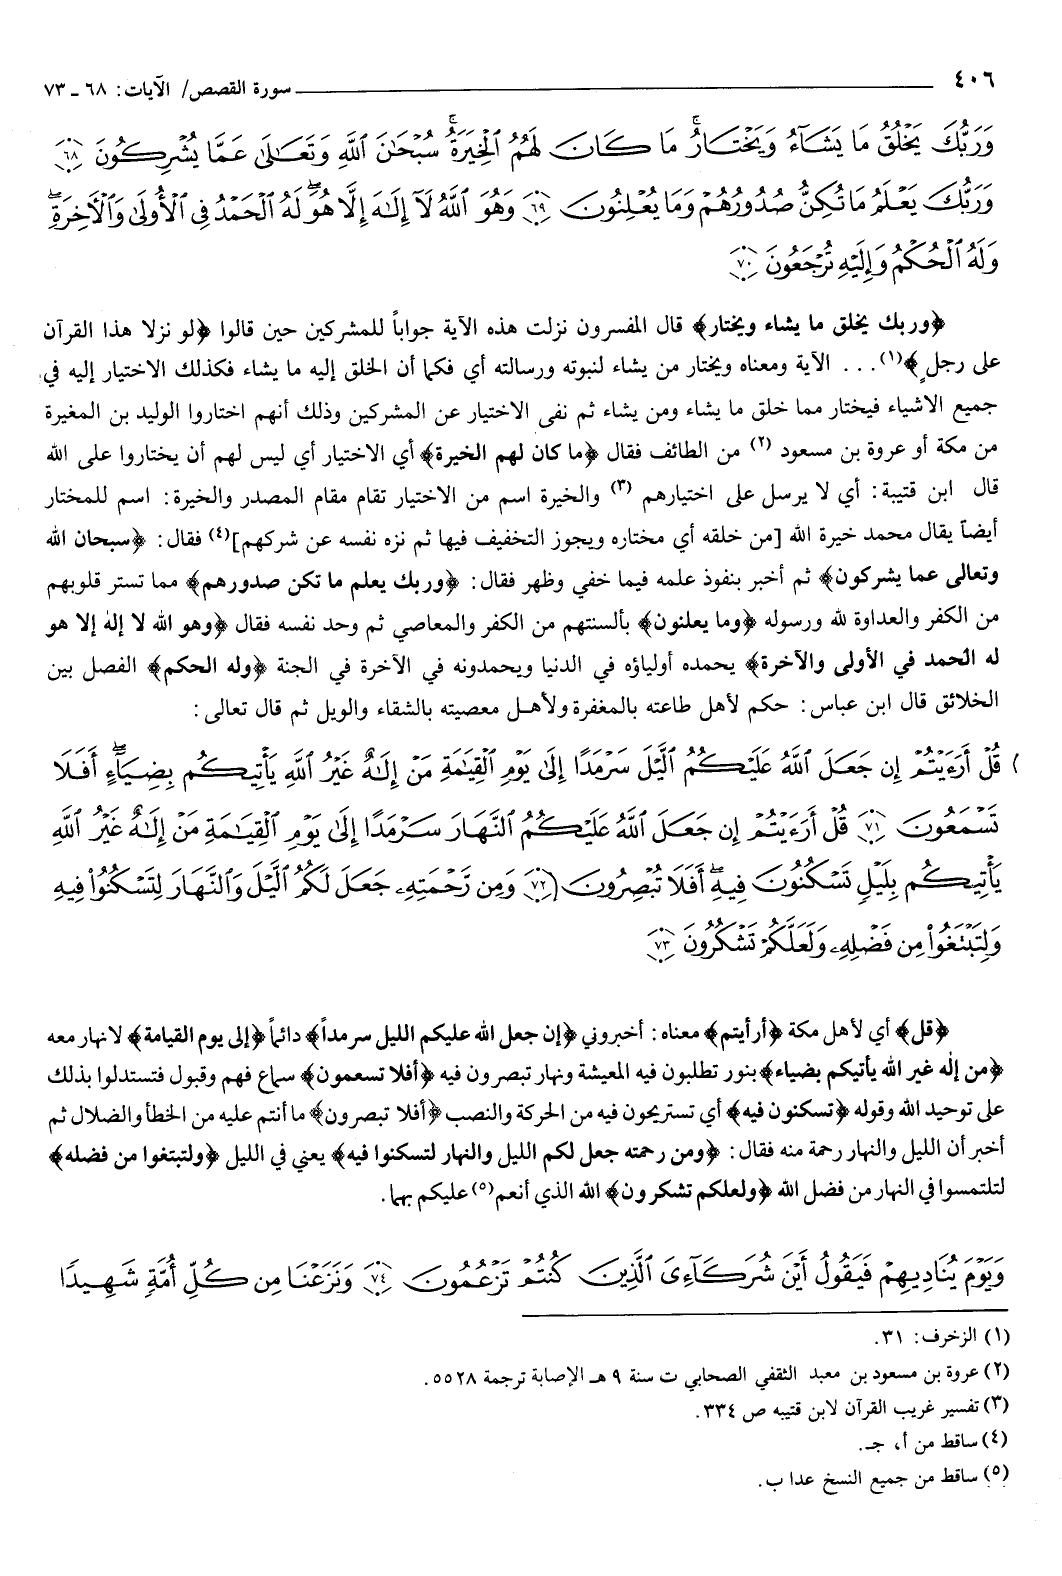 ٤٠٦ سورة القصص/ الآيات: ٦٨ ـ ٧٣
وَرَبُّكَ يَخْلُقُ مَا يَشَآءُ وَيَخْتَارُ مَا كَانَ لَهُمُ ٱلْخِيَرَةُ سُبْحَٰنَ ٱللَّهِ وَتَعَٰلَىٰ عَمَّا يُشْرِكُونَ ﴿٦٨﴾
وَرَبُّكَ يَعْلَمُ مَا تُكِنُّ صُدُورُهُمْ وَمَا يُعْلِنُونَ ﴿٦٩﴾ وَهُوَ ٱللَّهُ لَآ إِلَٰهَ إِلَّا هُوَ لَهُ ٱلْحَمْدُ فِى ٱلْأُولَىٰ وَٱلْآخِرَةِ
وَلَهُ ٱلْحُكْمُ وَإِلَيْهِ تُرْجَعُونَ ﴿٧٠﴾
﴿وربك يخلق ما يشاء ويختار﴾ قال المفسرون نزلت هذه الآية جواباً للمشركين حين قالوا ﴿لو نزلا هذا القرآن
على رجلٍ﴾(١)... الآية ومعناه ويختار من يشاء لنبوته ورسالته أي فكما أن الخلق إليه ما يشاء فكذلك الاختيار إليه في
جميع الاشياء فيختار مما خلق ما يشاء ومن يشاء ثم نفى الاختيار عن المشركين وذلك أنهم اختاروا الوليد بن المغيرة
من مكة أو عروة بن مسعود (٢) من الطائف فقال ﴿ما كان لهم الخيرة﴾ أي الاختيار أي ليس لهم أن يختاروا على الله
قال ابن قتيبة: أي لا يرسل على اختيارهم (٣) والخيرة اسم من الاختيار تقام مقام المصدر والخيرة: اسم للمختار
أيضاً يقال محمد خيرة الله [من خلقه أي مختاره ويجوز التخفيف فيها ثم نزه نفسه عن شركهم](٤) فقال: ﴿سبحان الله
وتعالى عما يشركون﴾ ثم أخبر بنفوذ علمه فيما خفي وظهر فقال: ﴿وربك يعلم ما تكن صدورهم﴾ مما تستر قلوبهم
من الكفر والعداوة لله ورسوله ﴿وما يعلنون﴾ بألسنتهم من الكفر والمعاصي ثم وحد نفسه فقال ﴿وهو الله لا إله إلا هو
له الحمد في الأولى والآخرة﴾ يحمده أولياؤه في الدنيا ويحمدونه في الآخرة في الجنة ﴿وله الحكم﴾ الفصل بين
الخلائق قال ابن عباس: حكم لأهل طاعته بالمغفرة ولأهل معصيته بالشقاء والويل ثم قال تعالى:
قُلْ أَرَءَيْتُمْ إِن جَعَلَ ٱللَّهُ عَلَيْكُمُ ٱلَّيْلَ سَرْمَدًا إِلَىٰ يَوْمِ ٱلْقِيَٰمَةِ مَنْ إِلَٰهٌ غَيْرُ ٱللَّهِ يَأْتِيكُم بِضِيَآءٍ أَفَلَا
تَسْمَعُونَ ﴿٧١﴾ قُلْ أَرَءَيْتُمْ إِن جَعَلَ ٱللَّهُ عَلَيْكُمُ ٱلنَّهَارَ سَرْمَدًا إِلَىٰ يَوْمِ ٱلْقِيَٰمَةِ مَنْ إِلَٰهٌ غَيْرُ ٱللَّهِ
يَأْتِيكُم بِلَيْلٍ تَسْكُنُونَ فِيهِ أَفَلَا تُبْصِرُونَ ﴿٧٢﴾ وَمِن رَّحْمَتِهِۦ جَعَلَ لَكُمُ ٱلَّيْلَ وَٱلنَّهَارَ لِتَسْكُنُوا۟ فِيهِ
وَلِتَبْتَغُوا۟ مِن فَضْلِهِۦ وَلَعَلَّكُمْ تَشْكُرُونَ ﴿٧٣﴾
﴿قل﴾ أي لأهل مكة ﴿أرأيتم﴾ معناه: أخبروني ﴿إن جعل الله عليكم الليل سرمداً﴾ دائماً ﴿إلى يوم القيامة﴾ لا نهار معه
﴿من إله غير الله يأتيكم بضياء﴾ بنور تطلبون فيه المعيشة ونهار تبصرون فيه ﴿أفلا تسعمون﴾ سماع فهم وقبول فتستدلوا بذلك
على توحيد الله وقوله ﴿تسكنون فيه﴾ أي تستريحون فيه من الحركة والنصب ﴿أفلا تبصرون﴾ ما أنتم عليه من الخطأ والضلال ثم
أخبر أن الليل والنهار رحمة منه فقال: ﴿ومن رحمته جعل لكم الليل والنهار لتسكنوا فيه﴾ يعني في الليل ﴿ولتبتغوا من فضله﴾
لتلتمسوا في النهار من فضل الله ﴿ولعلكم تشكرون﴾ الله الذي أنعم(٥) عليكم بهما.
وَيَوْمَ يُنَادِيهِمْ فَيَقُولُ أَيْنَ شُرَكَآءِىَ ٱلَّذِينَ كُنتُمْ تَزْعُمُونَ ﴿٧٤﴾ وَنَزَعْنَا مِن كُلِّ أُمَّةٍ شَهِيدًا
(١) الزخرف: ٣١.
(٢) عروة بن مسعود بن معبد الثقفي الصحابي ت سنة ٩ هـ الإصابة ترجمة ٥٥٢٨.
(٣) تفسير غريب القرآن لابن قتيبه ص ٣٣٤.
(٤) ساقط من أ، جـ.
(٥) ساقط من جميع النسخ عدا ب.